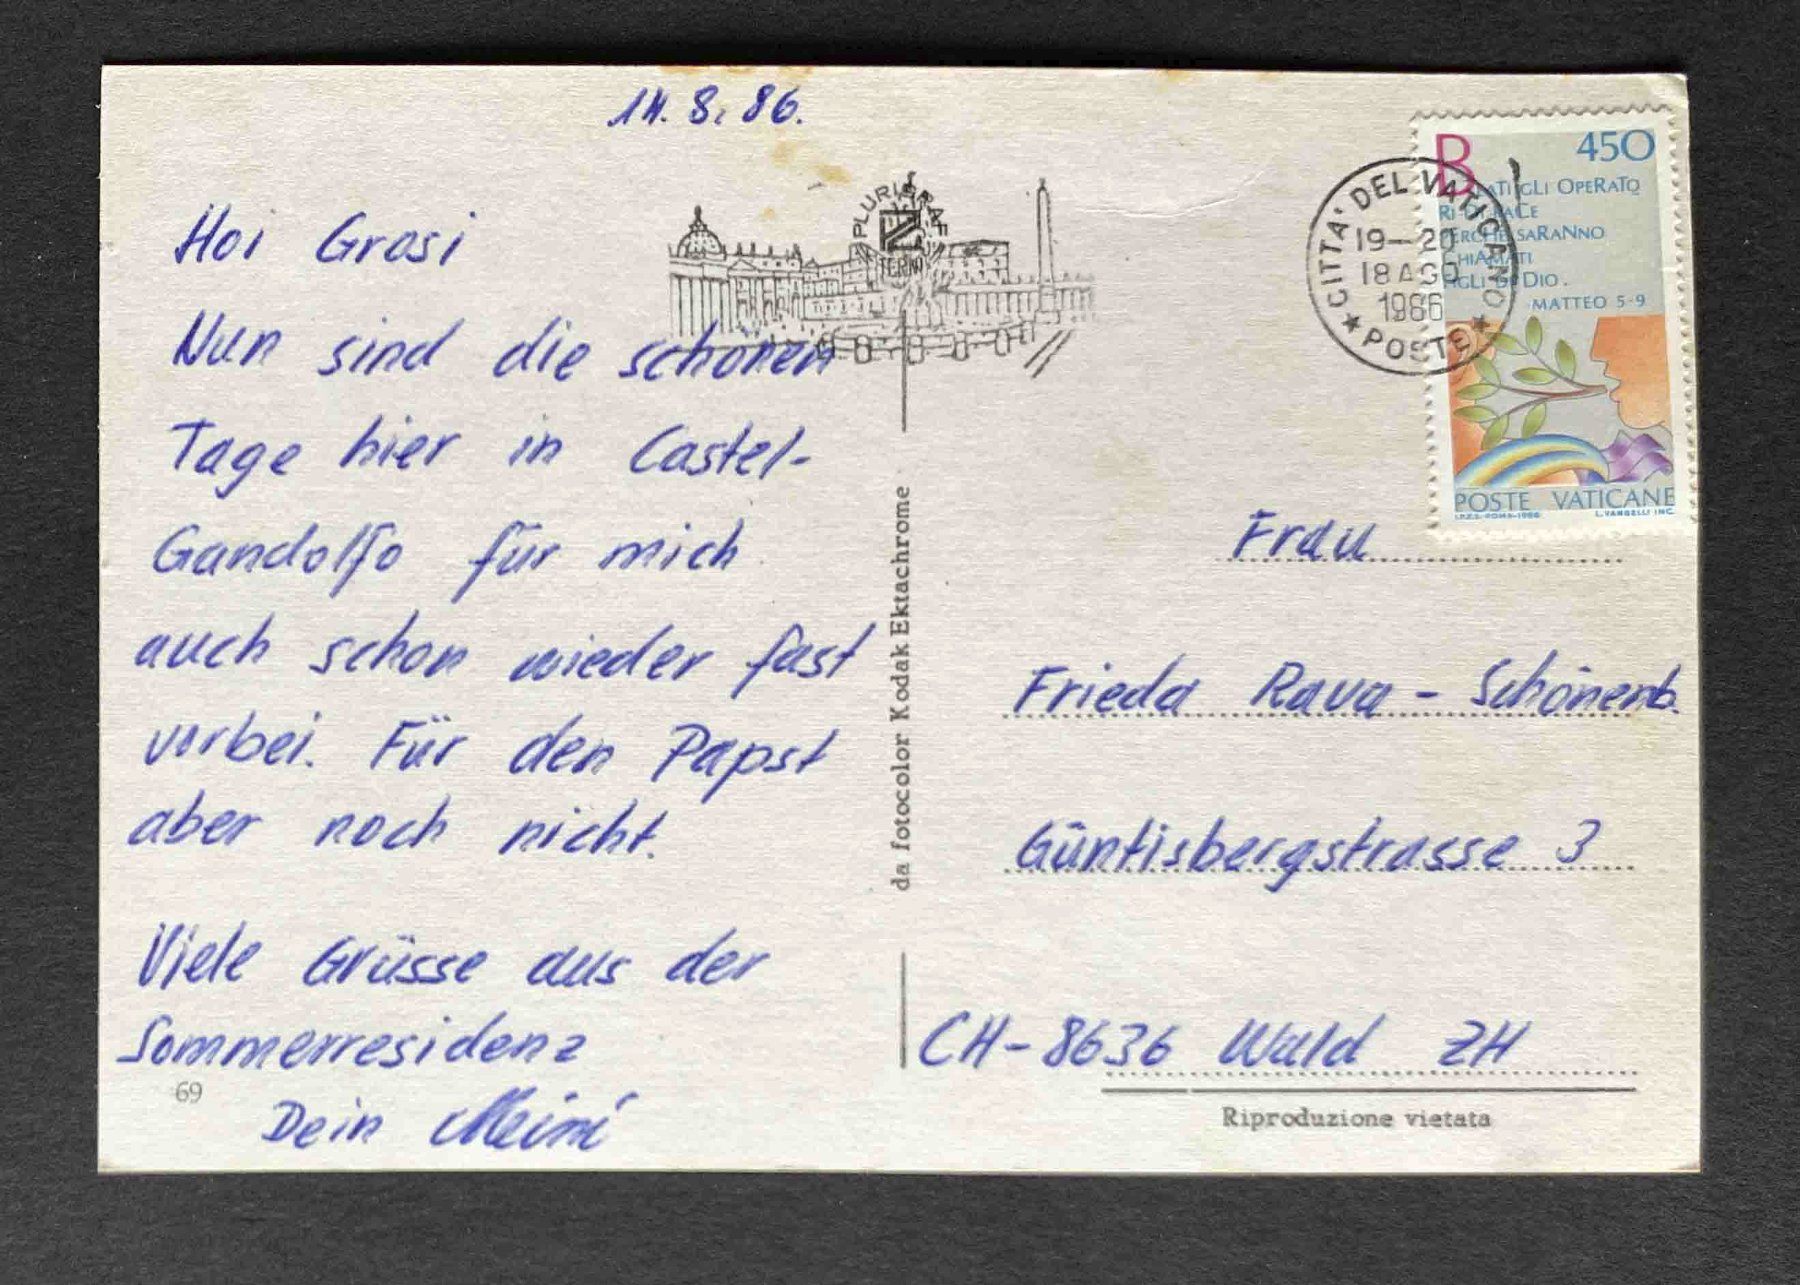 14. 8. 86.
Hoi Grosi
Nun sind die schönen
Tage hier in Castel-
Gandolfo für mich
auch schon wieder fast
vorbei. Für den Papst
aber noch nicht.
Viele Grüsse aus der
Sommerresidenz
Dein
69
PLURIGRAF
TERNI
da fotocolor Kodak Ektachrome
CITTA' DEL VATICANO
19-20
18 AGO
1986
POSTE
B 450
BEATI GLI OPERATO
RI DI PACE
PERCHE SARANNO
CHIAMATI
FIGLI DI DIO.
MATTEO 5-9
POSTE VATICANE
I.P.Z.S. ROMA-1986 L. VANGELLI INC.
Frau
Frieda Rava - Schönenb.
Güntisbergstrasse 3
CH-8636 Wald ZH
Riproduzione vietata